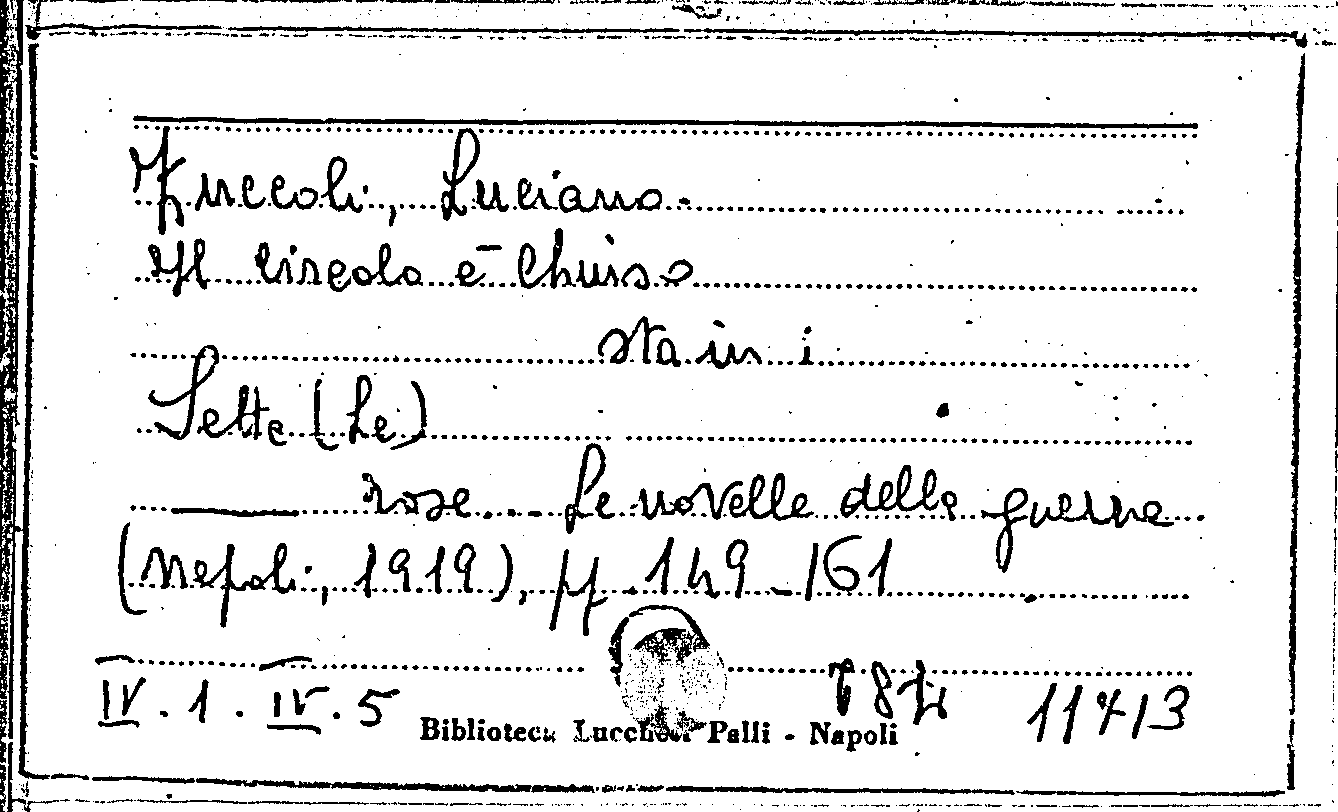 Zuccoli, Luciano.
Il circolo è chiuso
sta in :
Sette (Le)
——— rose... Le novelle della guerra
(Napoli, 1919), pp. 149-161
IV. 1. IV. 5 11413
Biblioteca Lucchesi Palli - Napoli